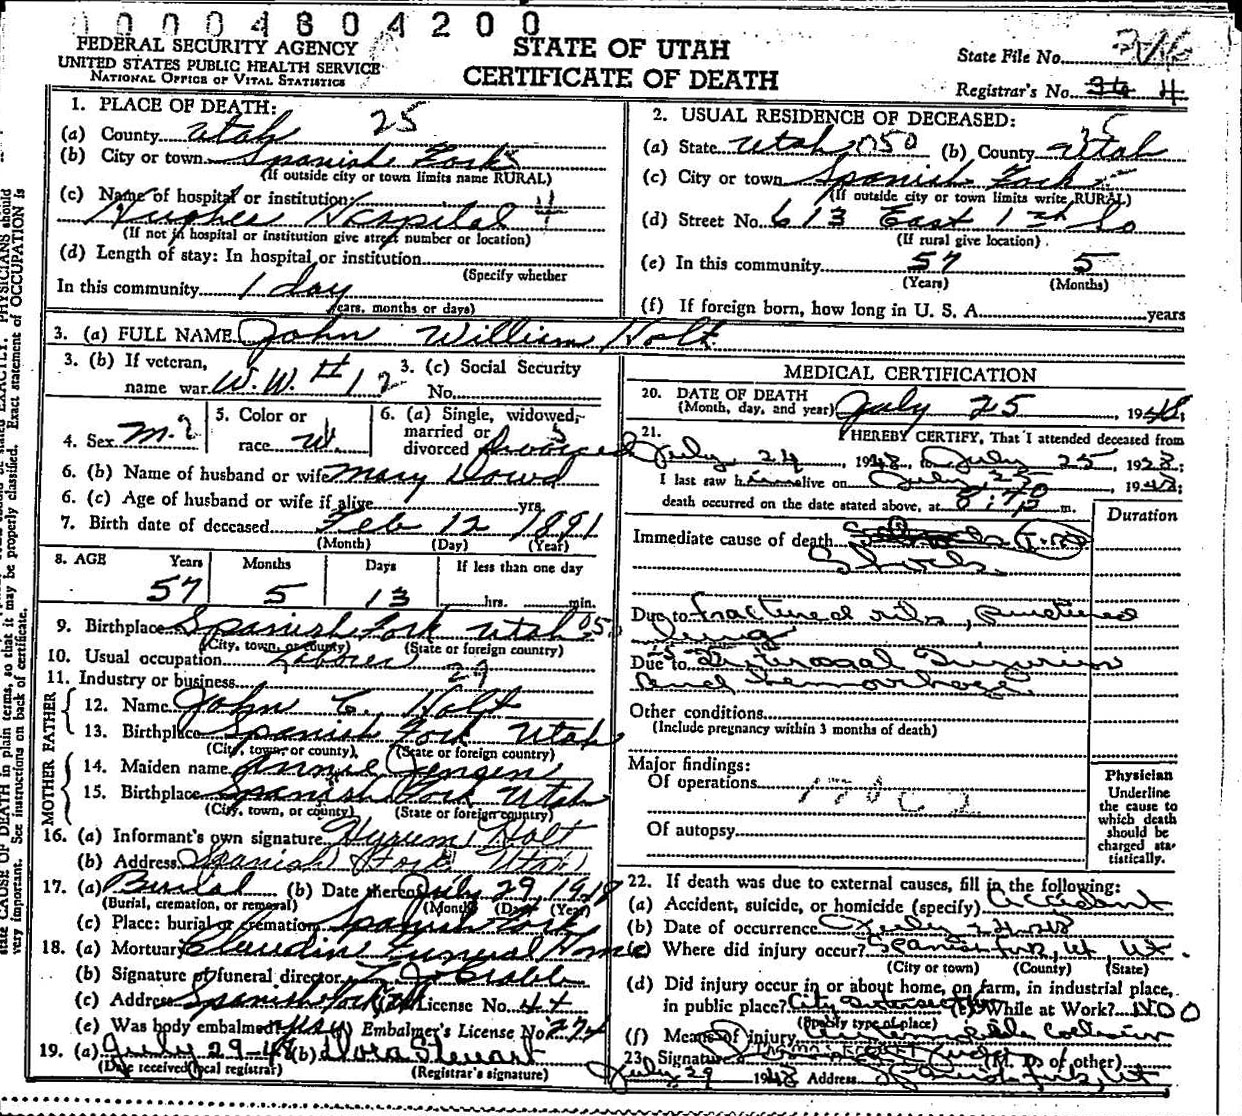 0 0 0 4 8 0 4 2 0 0
FEDERAL SECURITY AGENCY
UNITED STATES PUBLIC HEALTH SERVICE
NATIONAL OFFICE OF VITAL STATISTICS
STATE OF UTAH
CERTIFICATE OF DEATH
State File No.
Registrar's No. 34 4
1. PLACE OF DEATH:
(a) County Utah 25
(b) City or town Spanish Fork
(If outside city or town limits name RURAL)
(c) Name of hospital or institution:
Hughes Hospital 4
(If not in hospital or institution give street number or location)
(d) Length of stay: In hospital or institution
(Specify whether
In this community 1 day
years, months or days)
2. USUAL RESIDENCE OF DECEASED:
25
(a) State Utah 050 (b) County Utah
(c) City or town Spanish Fork
(If outside city or town limits write RURAL)
(d) Street No. 613 East 1st So
(If rural give location)
(e) In this community 57 5
(Years) (Months)
(f) If foreign born, how long in U. S. A. years
3. (a) FULL NAME John William Holt
3. (b) If veteran,
name war W. W. # 1 2
3. (c) Social Security
No.
4. Sex M.
5. Color or
race W.
6. (a) Single, widowed,
married or
divorced Divorced 5
6. (b) Name of husband or wife Mary Dowd
6. (c) Age of husband or wife if alive yrs.
7. Birth date of deceased Feb 12 1891
(Month) (Day) (Year)
8. AGE Years Months Days If less than one day
57 5 13 hrs. min.
9. Birthplace Spanish Fork Utah 05
(City, town, or county) (State or foreign country)
10. Usual occupation Laborer
11. Industry or business 29
FATHER
12. Name John E. Holt
13. Birthplace Spanish Fork Utah
(City, town, or county) (State or foreign country)
MOTHER
14. Maiden name Annie Jensen
15. Birthplace Spanish Fork Utah
(City, town, or county) (State or foreign country)
16. (a) Informant's own signature Hyrum Holt
(b) Address Spanish Fork Utah
17. (a) Burial (b) Date thereof July 29, 1948
(Burial, cremation, or removal) (Month) (Day) (Year)
(c) Place: burial or cremation Spanish Fork
18. (a) Mortuary Claudin Funeral Home
(b) Signature of funeral director
(c) Address Spanish Fork Ut License No. 44
(e) Was body embalmed? Yes (f) Embalmer's License No 274
19. (a) July 29-48 (b) Flora Stewart
(Date received local registrar) (Registrar's signature)
MEDICAL CERTIFICATION
20. DATE OF DEATH
(Month, day, and year) July 25, 1948;
21. I HEREBY CERTIFY, That I attended deceased from
July 24, 1948, to July 25, 1948;
I last saw him alive on July 25, 1948;
death occurred on the date stated above, at 8:40 P m.
Duration
Immediate cause of death
Shock
Due to fractured ribs, punctured
lung
Due to Internal Injuries
and hemorrhage
Other conditions
(Include pregnancy within 3 months of death)
Major findings:
Of operations 170C2
Of autopsy
Physician
Underline
the cause to
which death
should be
charged sta-
tistically.
22. If death was due to external causes, fill in the following:
(a) Accident, suicide, or homicide (specify) Accident
(b) Date of occurrence July 24, 48
(c) Where did injury occur? Spanish Fork, Ut, Ut.
(City or town) (County) (State)
(d) Did injury occur in or about home, on farm, in industrial place,
in public place? City Intersection (e) While at Work? No 0
(Specify type of place)
(f) Means of injury Automobile Collision
23. Signature (M. D. or other)
July 29 1948 Address Spanish Fork, Ut
state CAUSE OF DEATH in plain terms, so that it may be properly classified. Exact statement of OCCUPATION is
very important. See instructions on back of certificate.